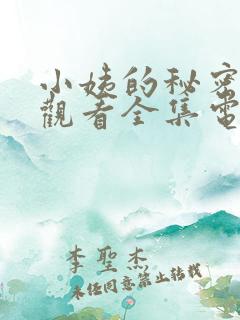 小姨的秘密
觀看全集電
李聖杰
未经同意禁止转载